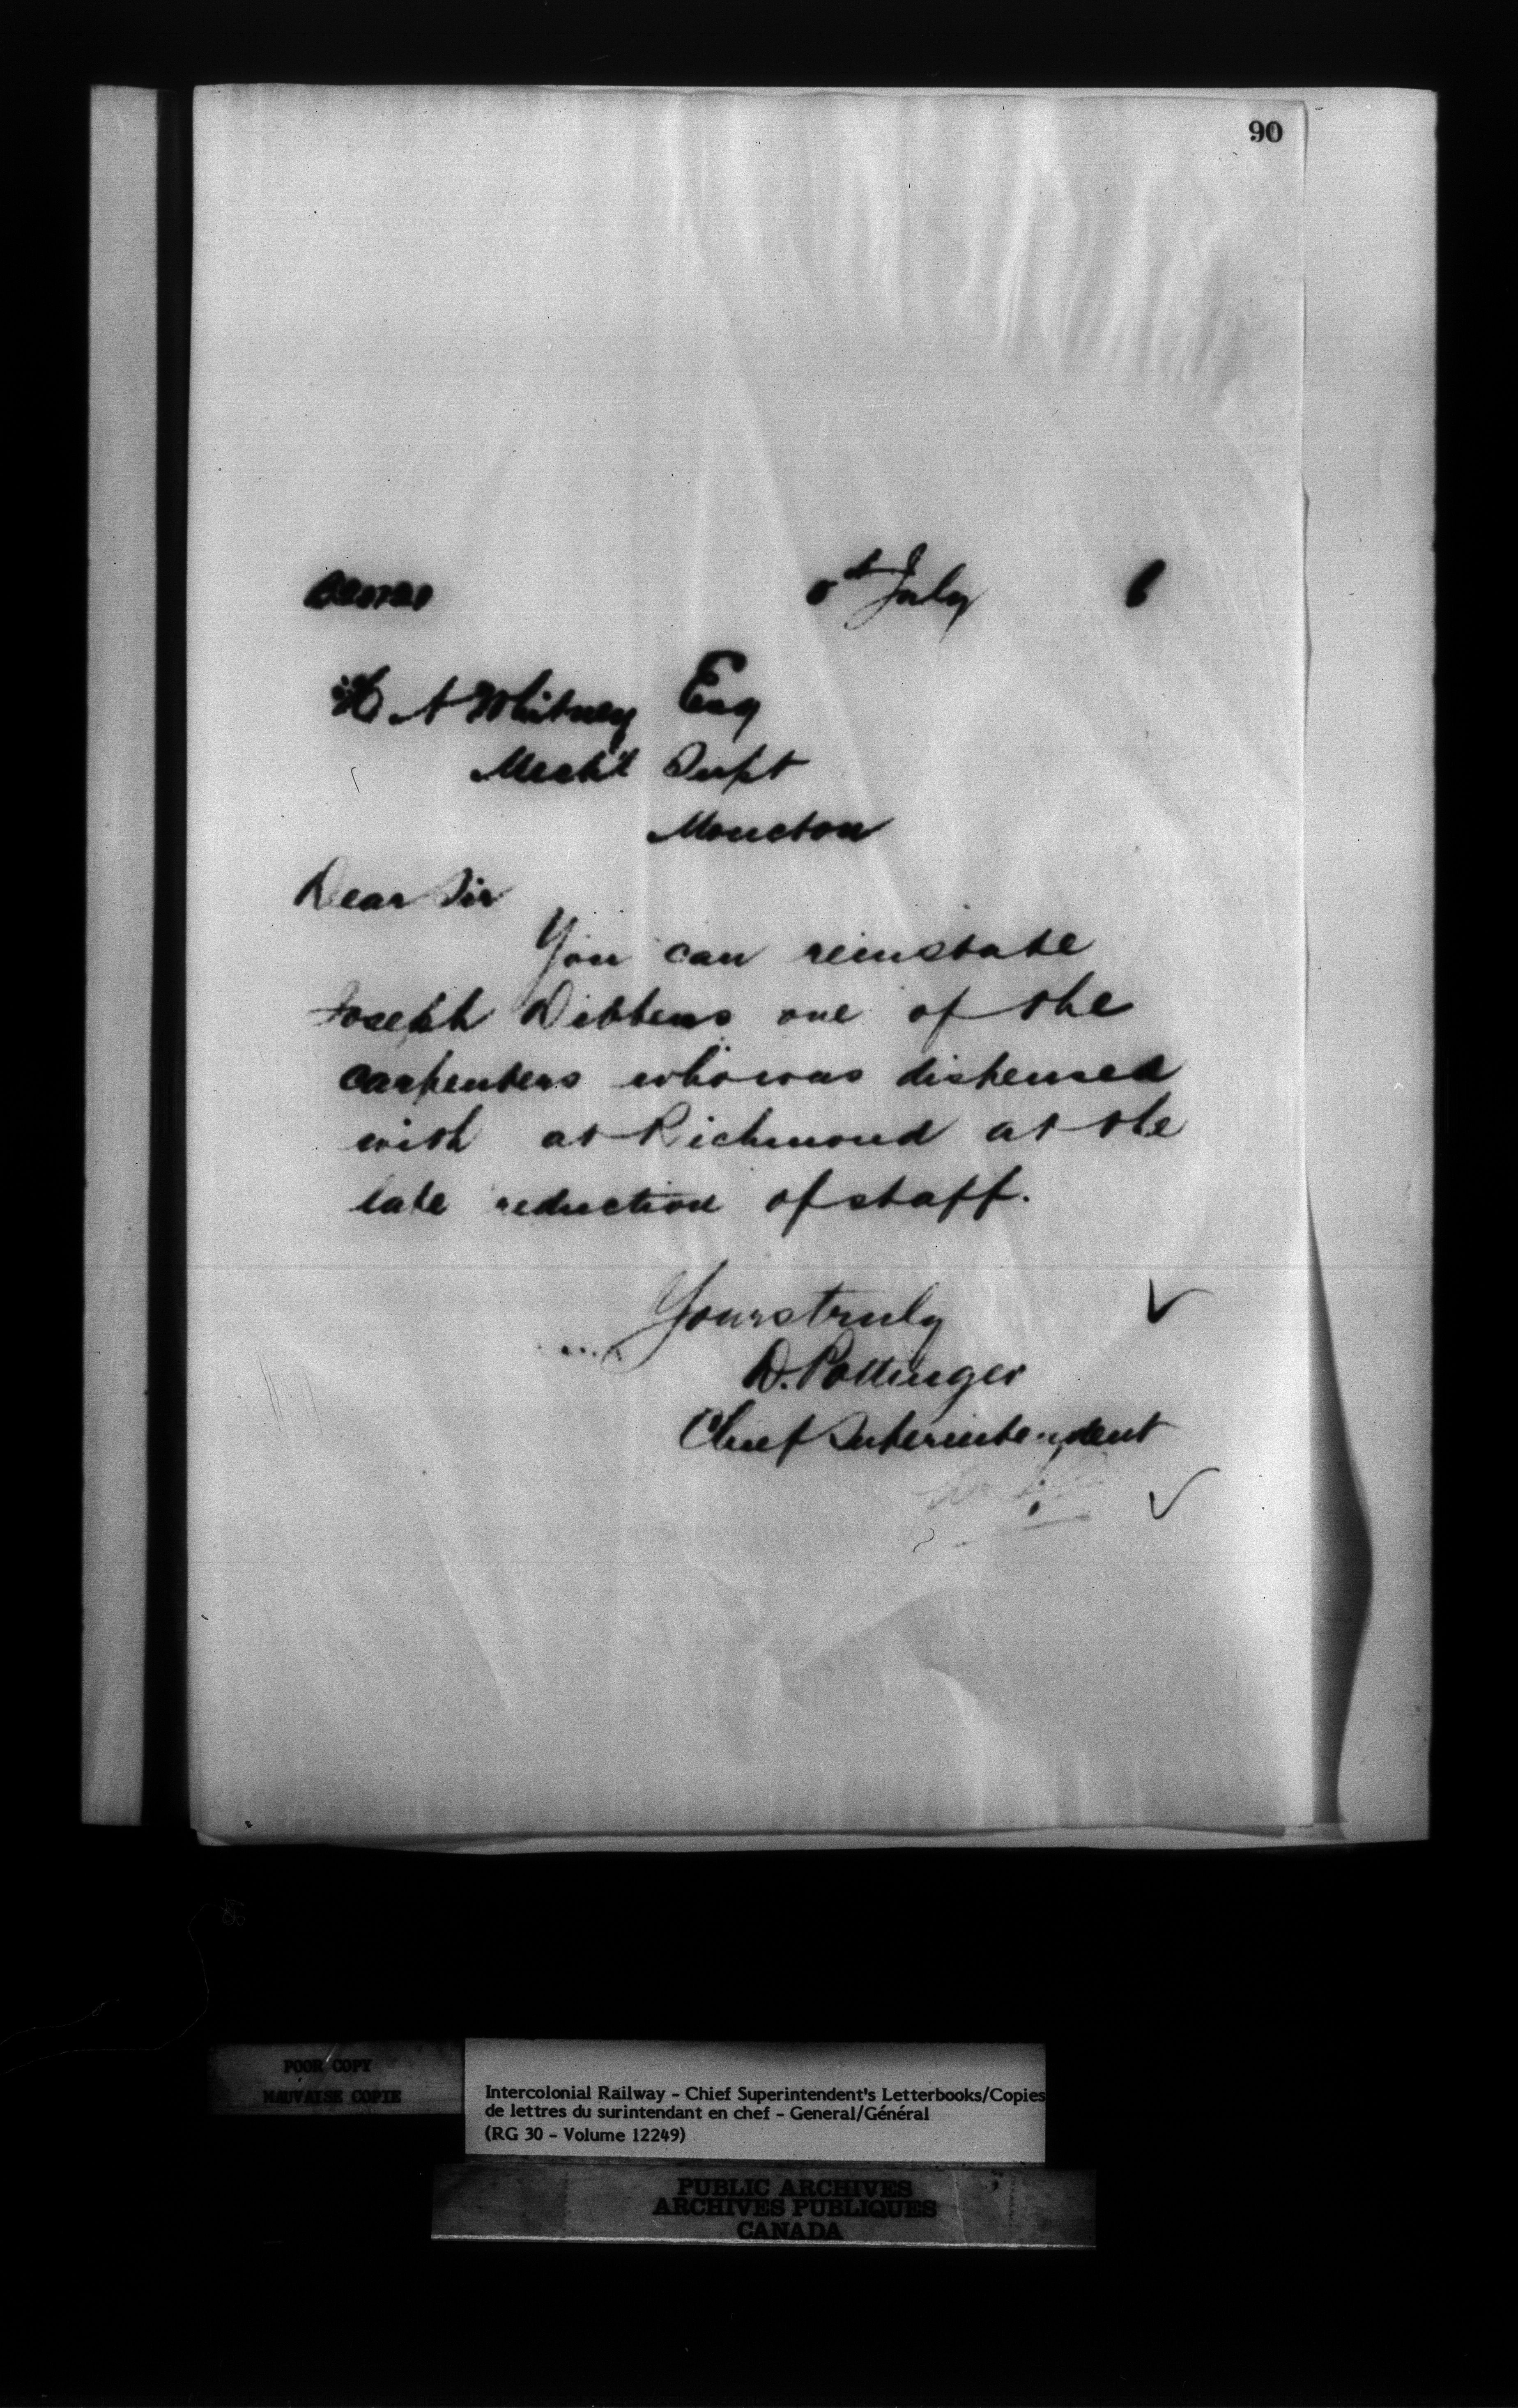 90
July 6
H A Whitney Esq
Mech'l Supt
Moncton
Dear Sir
You can reinstate
Joseph Dibbens one of the
carpenters who was dispensed
with at Richmond at the
late reduction of staff.
Yours truly
D. Pottinger
Chief Superintendent
POOR COPY
MAUVAISE COPIE
Intercolonial Railway - Chief Superintendent's Letterbooks/Copies
de lettres du surintendant en chef - General/Général
(RG 30 - Volume 12249)
PUBLIC ARCHIVES
ARCHIVES PUBLIQUES
CANADA